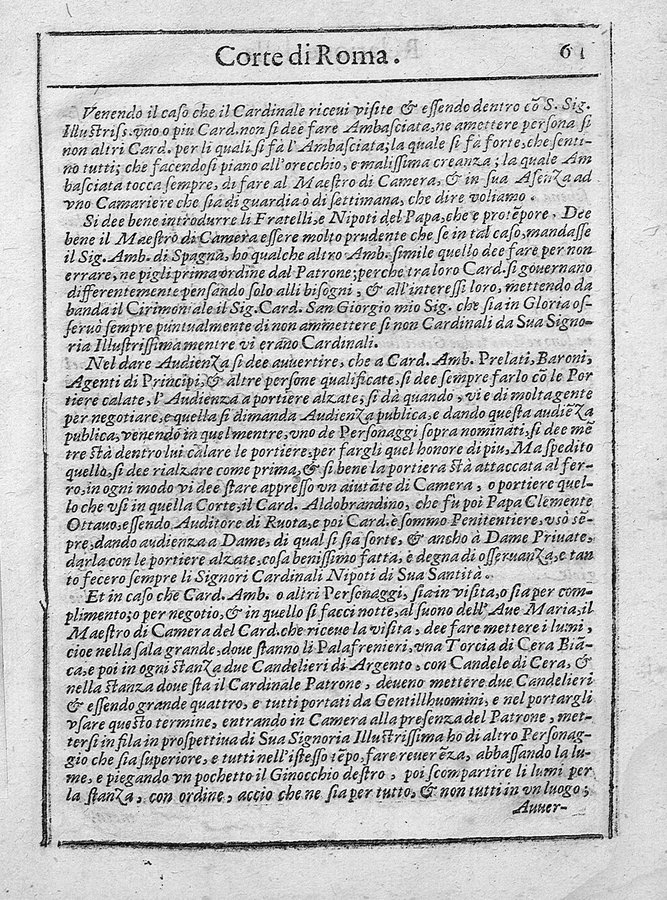 Corte di Roma. 61
Venendo il caso che il Cardinale riceui visite & essendo dentro cõ S. Sig.
Illustriss. vno o piu Card. non si dee fare Ambasciata, ne amettere persona si
non altri Card. per li quali si fà l'Ambasciata; la quale si fà forte, che senti-
no tutti; che facendosi piano all'orecchio, e malissima creanza; la quale Am
basciata tocca sempre, di fare al Maestro di Camera, & in sua Asenza ad
vno Camariere che sia di guardia ò di settimana, che dire voliamo.
Si dee bene introdurre li Fratelli, e Nipoti del Papa, che è pro tẽpore. Dee
bene il Maestro di Camera essere molto prudente che se in tal caso, mandasse
il Sig. Amb. di Spagna, ho qualche altro Amb. simile quello dee fare per non
errare, ne pigli prima ordine dal Patrone; perche tra loro Card. si gouernano
differentemente pensando solo alli bisogni, & all'interessi loro, mettendo da
banda il Cirimoniale il Sig. Card. San Giorgio mio Sig. che sia in Gloria os-
seruò sempre puntualmente di non ammettere si non Cardinali da Sua Signo-
ria Illustrissima mentre vi erano Cardinali.
Nel dare Audienza si dee auuertire, che a Card. Amb. Prelati, Baroni,
Agenti di Principi, & altre persone qualificate, si dee sempre farlo cõ le Por
tiere calate, l'Audienza a portiere alzate, si dà quando, vi è di molta gente
per negotiare, e quella si dimanda Audienza publica, e dando questa audiẽza
publica, venendo in quel mentre, vno de Personaggi sopra nominati, si dee mẽ
tre stà dentro lui calare le portiere, per fargli quel honore di piu, Ma spedito
quello, si dee rialzare come prima, & si bene la portiera stà attaccata al fer-
ro, in ogni modo vi dee stare appresso vn aiutãte di Camera, o portiere quel-
lo che vsi in quella Corte, il Card. Aldobrandino, che fu poi Papa Clemente
Ottauo, essendo Auditore di Ruota, e poi Card. è sommo Penitentiere, vsò sẽ-
pre, dando audienza a Dame, di qual si sia sorte, & ancho à Dame Priuate,
darla con le portiere alzate, cosa benissimo fatta, è degna di osseruanza, e tan
to fecero sempre li Signori Cardinali Nipoti di Sua Santità.
Et in caso che Card. Amb. o altri Personaggi, sia in visita, o sia per com-
plimento; o per negotio, & in quello si facci notte, al suono dell'Aue Maria, il
Maestro di Camera del Card. che riceue la visita, dee fare mettere i lumi,
cioe nella sala grande, doue stanno li Palafrenieri, vna Torcia di Cera Biã-
ca, e poi in ogni stanza due Candelieri di Argento, con Candele di Cera, &
nella stanza doue sta il Cardinale Patrone, deueno mettere due Candelieri
& essendo grande quattro, e tutti portati da Gentilhuomini, e nel portargli
vsare questo termine, entrando in Camera alla presenza del Patrone, met-
tersi in fila in prospettiua di Sua Signoria Illustrissima ho di altro Personag-
gio che sia superiore, e tutti nell'istesso tẽpo, fare reuerẽza, abbassando la lu-
me, e piegando vn pochetto il Ginocchio destro, poi scompartire li lumi per
la stanza, con ordine, accio che ne sia per tutto, & non tutti in vn luogo;
Auuer-